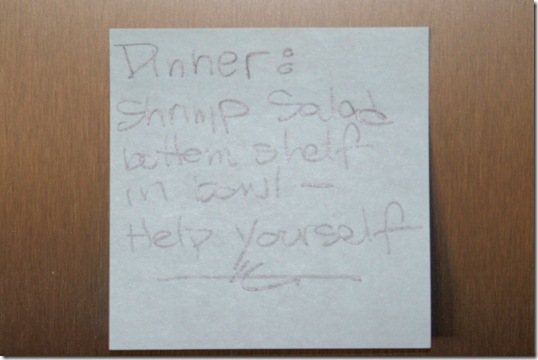 Dinner:
Shrimp Salad
bottem shelf
in bowl -
Help yourself